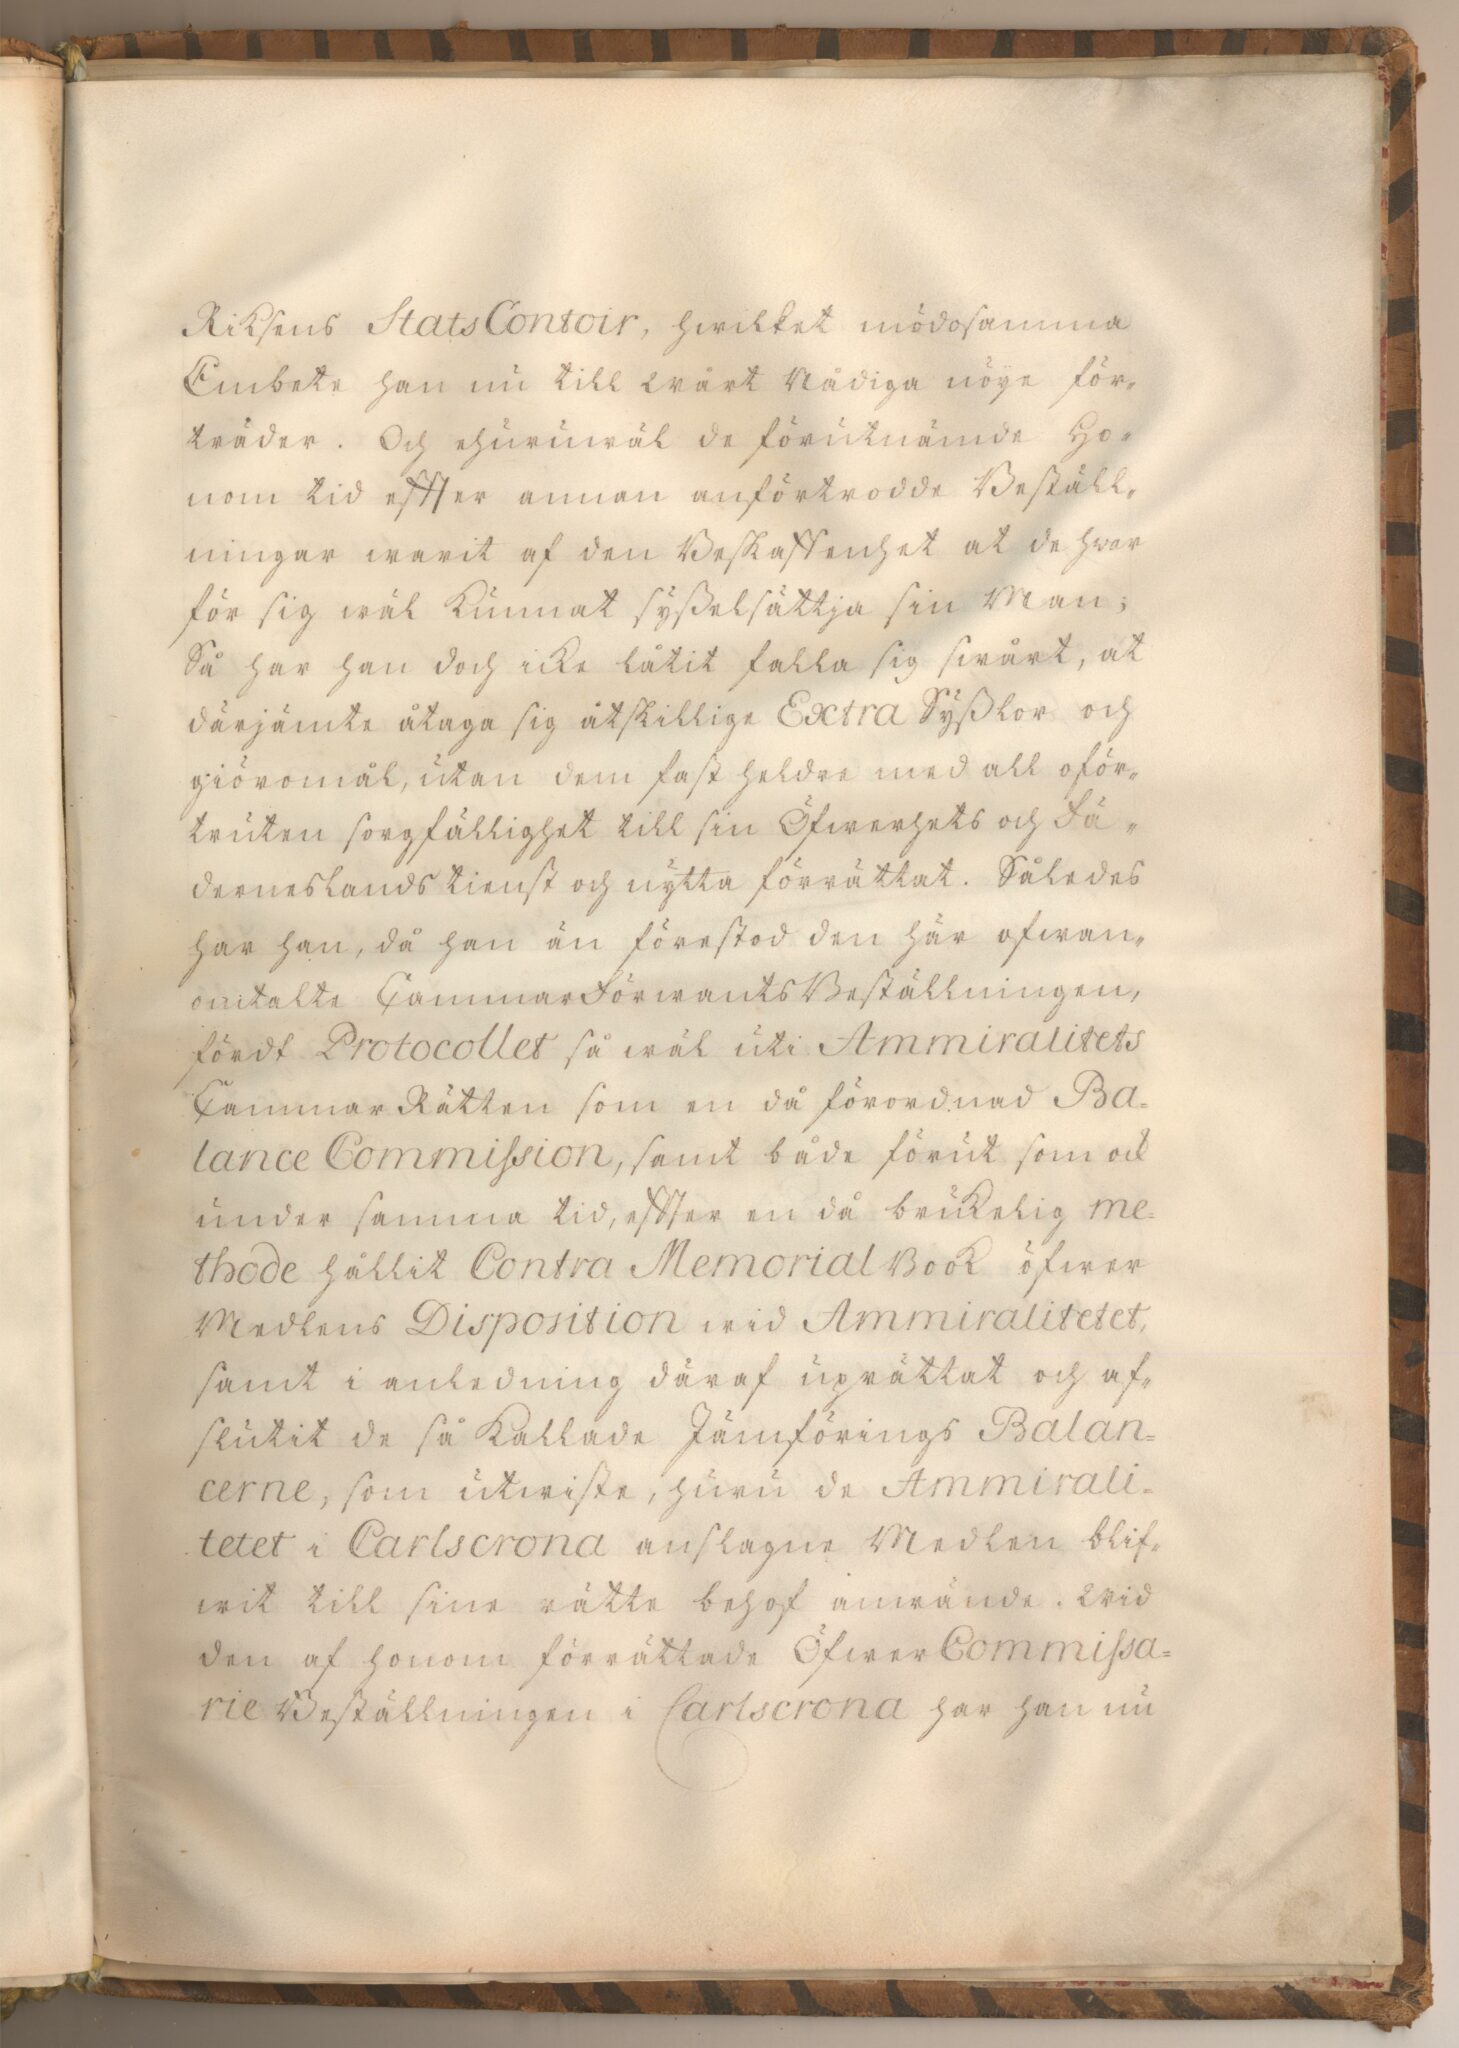 Riksens StatsContoir, hwilket mödosamma
Embete han nu till Wårt Nådiga nöye för-
träder. Och ehuruwäl de förutnämde Ho-
nom tid effter annan anförtrodde Beställ-
ningar warit af den Beskaffenhet at de hwar
för sig wäl kunnat sysselsättja sin Man;
Så har han doch icke låtit falla sig swårt, at
därjämte åtaga sig åtskillige Extra Sysslor och
giöromål, utan dem fast heldre med all oför-
truten sorgfällighet till sin Öfwerhets och Fä-
derneslands tienst och nytta förrättat. Således
har han, då han än förestod den här ofwan-
omtalte CammarFörwantsBeställningen,
fördt Protocollet så wäl uti Ammiralitets
CammarRätten som en då förordnad Ba-
lance Commission, samt både förut som ock
under samma tid, effter en då brukelig me-
thode hållit Contra Memorial Book öfwer
Medlens Disposition wid Ammiralitetet,
samt i anledning däraf uprättat och af-
slutit de så kallade Jämförings Balan-
cerne, som utwiste, huru de Ammirali-
tetet i Carlscrona anslagne Medlen blif-
wit till sine rätte behof anwände. Wid
den af honom förrättade ÖfwerCommissa-
rie Beställningen i Carlscrona har han nu